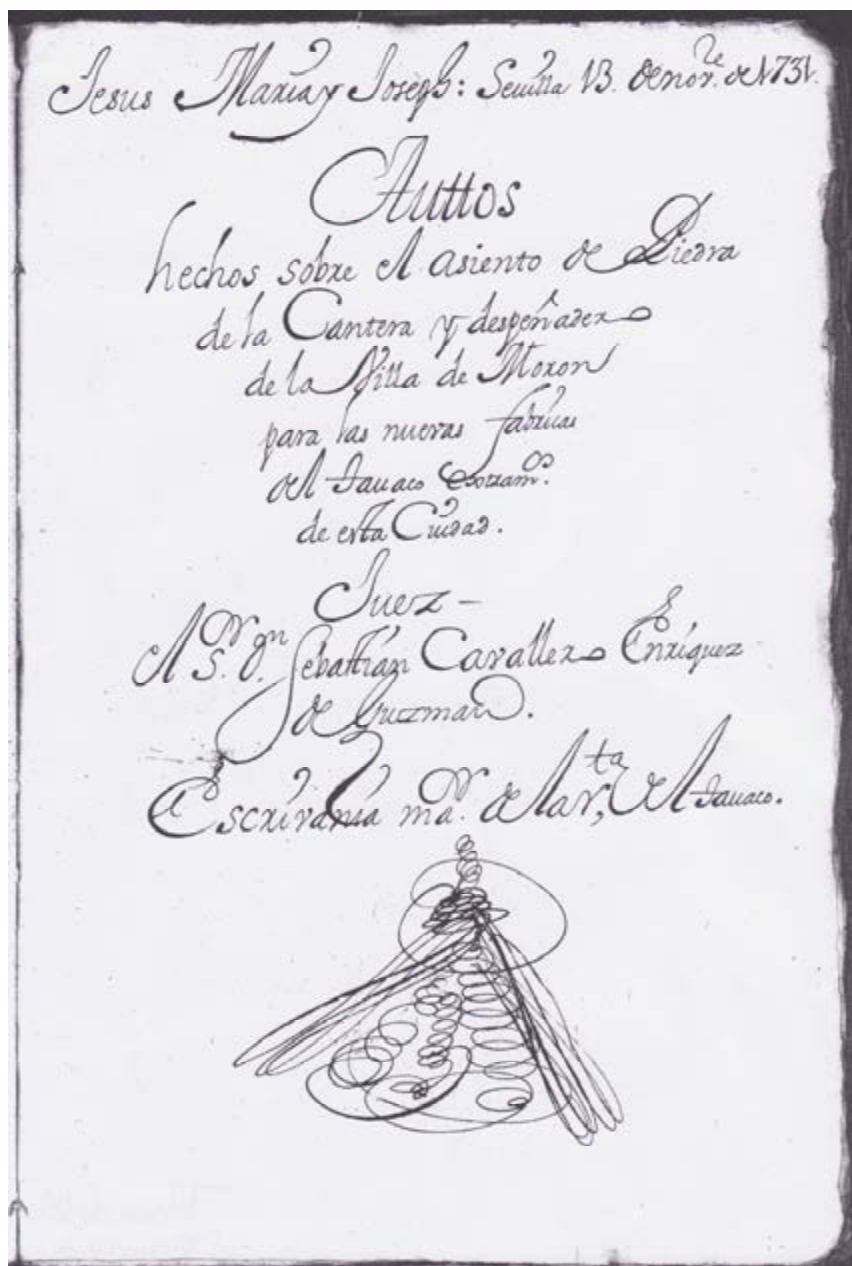 Jesus Maria y Joseph: Sevilla 13. de nov.re de 1731.
Auttos
hechos sobre el asiento de Piedra
de la Cantera y despeñadero
de la Villa de Moron
para las nuevas fabricas
del tauaco extram.s
de esta Ciudad.
Juez-
El S.or D.n Sebastian Cavallero Enriquez
de Guzman.
Escrivania ma.or de la r.ta del tauaco.